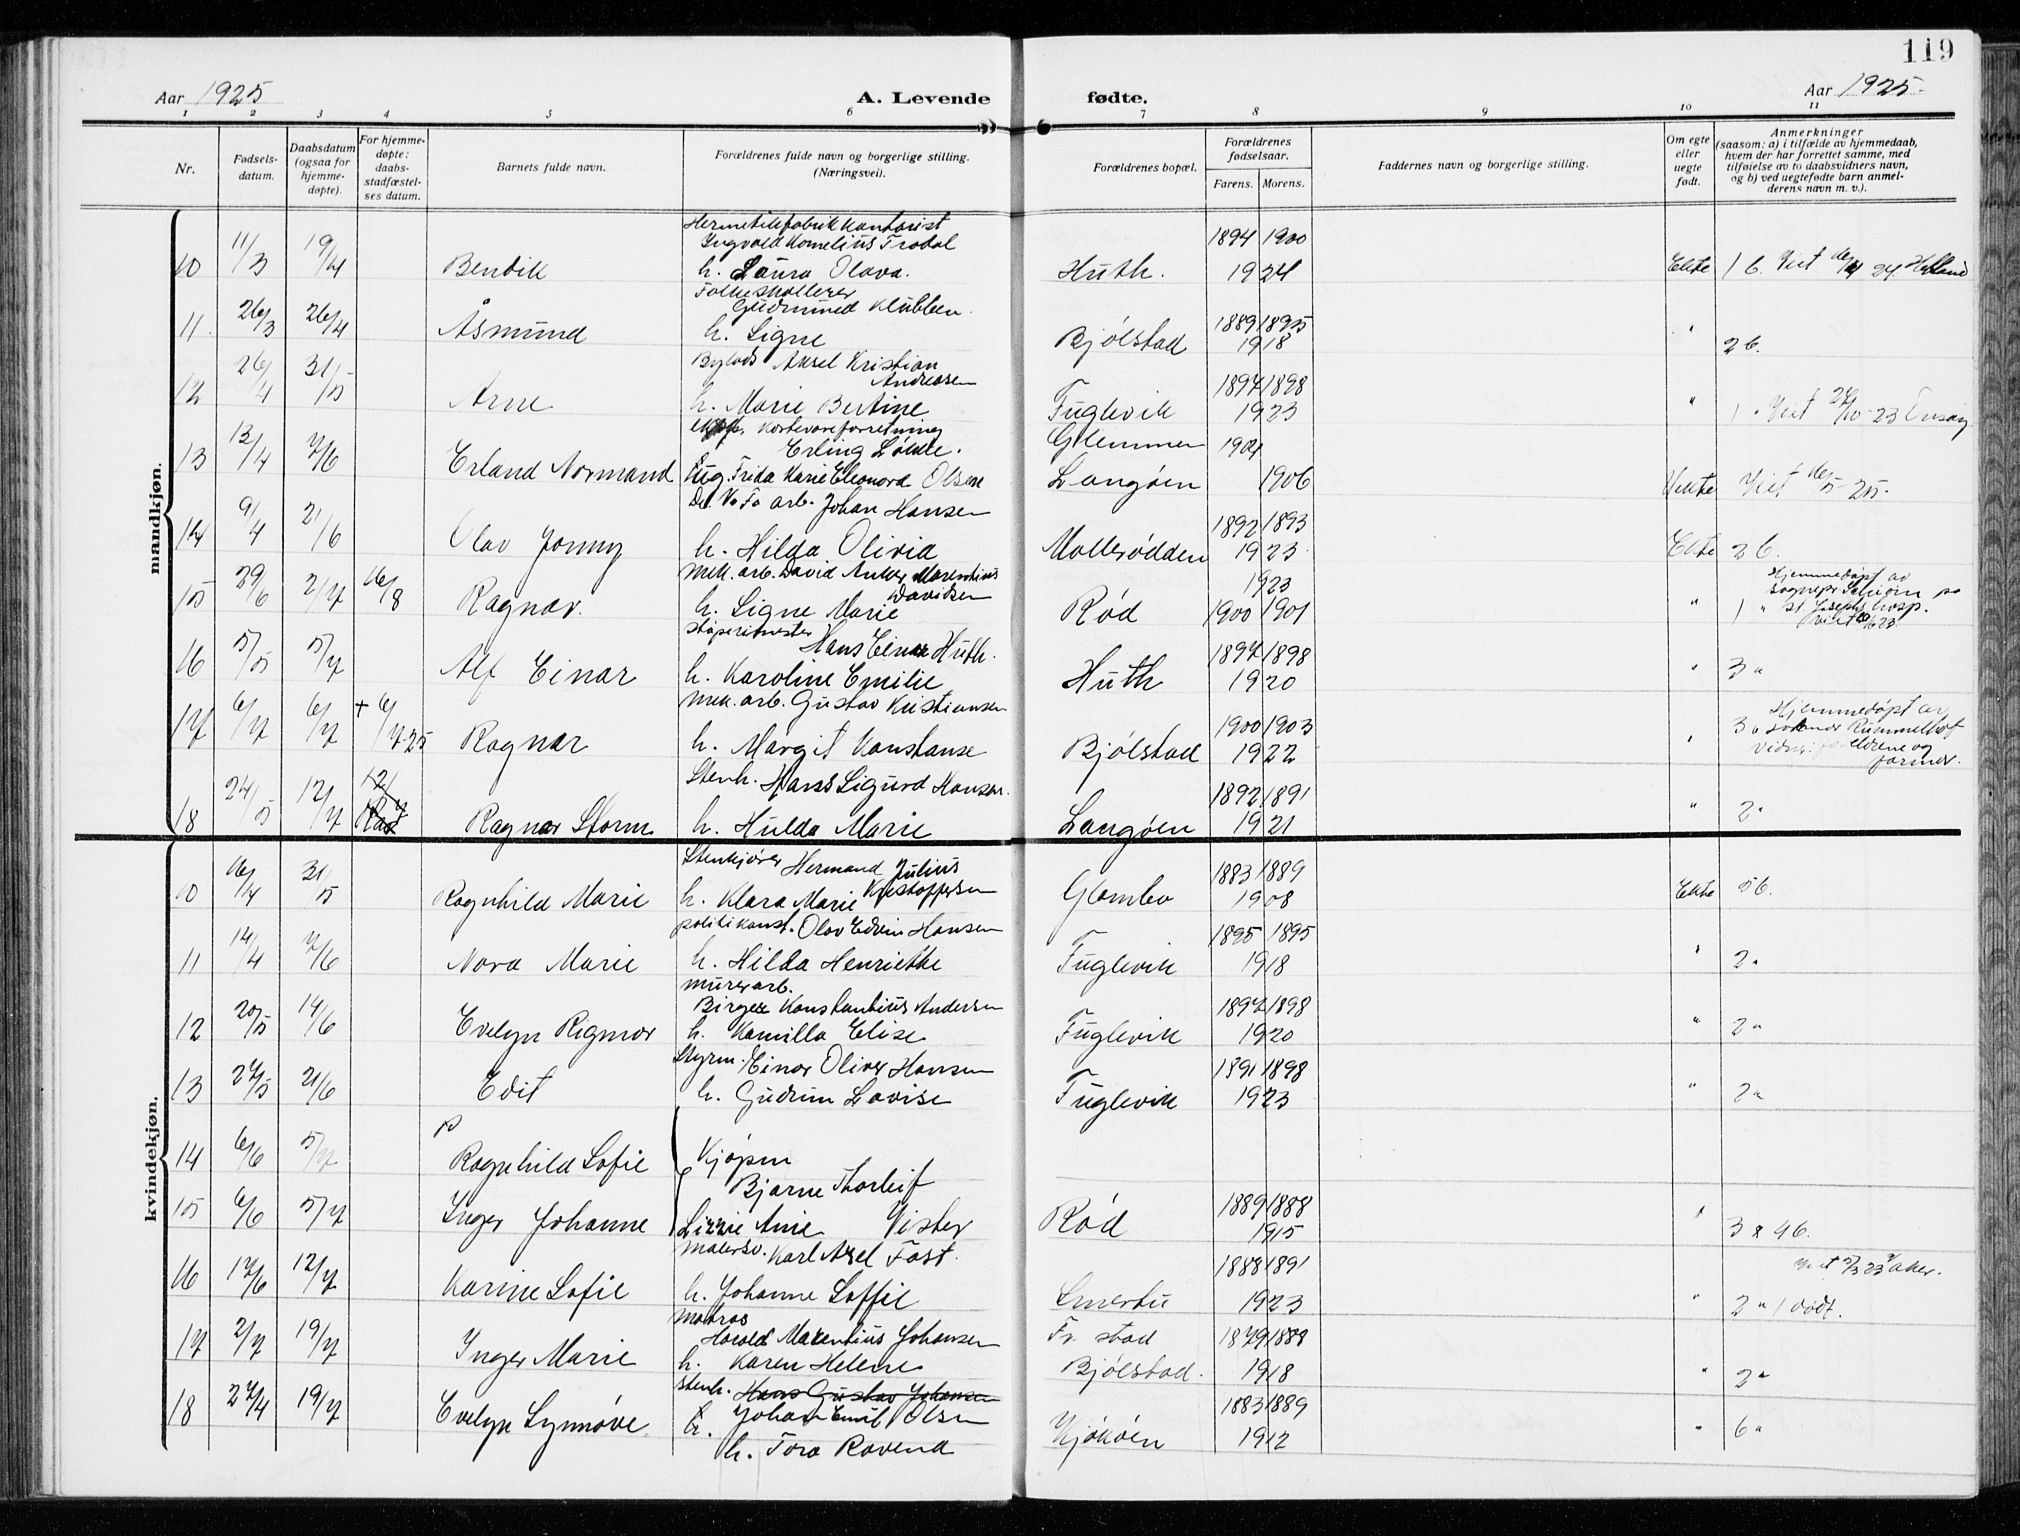 119
Aar 1925
A. Levende fødte.
Aar 1925
1 2 3 4 5 6 7 8 9 10 11
Nr.
Fødsels-
datum.
Daabsdatum
(ogsaa for
hjemme-
døpte).
For hjemme-
døpte:
daabs-
stadfæstel-
ses datum.
Barnets fulde navn.
Forældrenes fulde navn og borgerlige stilling.
(Næringsvei).
Forældrenes bopæl.
Forældrenes
fødselsaar.
Farens. Morens.
Faddernes navn og borgerlige stilling.
Om egte
eller
uegte
født.
Anmerkninger
(saasom: a) i tilfælde av hjemmedaab,
hvem der har forrettet samme, med
tilføielse av to daabsvidners navn,
og b) ved uegtefødte barn anmel-
derens navn m. v.).
mandkjøn.
Hermetikfabrik kontorist
Ingvald Kornelius Trodal 1894 1900
10 11/3 19/4 Bendik h. Laura Olava. Huth. 1924 Ekte 1 b. Viet
Folkeskollerer
Gudmund Klubben.
11. 26/3 26/4 Åsmund h. Signe Bjølstad 1889 1895 1918 " 2 b.
Aksel Kristian
Andreasen
12 26/4 31/5 Arne h. Marie Bertine Fuglevik 1897 1898 1923 " 1 " Viet 23
kortevareforretning
Erling Løkke. Glemmen 1904
13 13/4 7/6 Erland Normand Ug. Frida Marie Eleonora Olsen Langøen 1906 Uekte Viet 25.
De. No Fa arb. Johan Hansen
14 9/4 21/6 Olav Jonny h. Hilda Olivia Mallerødden 1892 1893 1923 Ekte 2 b.
mek. arb. David Anker Marentius
Davidsen
15 29/6 2/7 16/8 Ragnar. h. Signe Marie Rød 1923 1900 1901 " 1 " Hjemmedøpt av
sognepr. på
St. Josephs hosp.
støperimester
Hans Einar Huth.
16 5/5 5/7 Alf Einar h. Karoline Emilie Huth 1897 1898 1920 " 3 "
mek. arb. Gustav Kristiansen
17 6/7 6/7 + 6/7 25 Ragnar h. Margit Konstanse Bjølstad 1900 1903 1922 " 3 " Hjemmedøpt av
Rummelhof
Vidner: foreldrene og
farmor.
Stenh. Hans Sigurd Hansen.
18 24/5 12/7 12/7 Ragnar Storm h. Hulda Marie Langøen 1892 1891 1921 " 2 "
kvindekjøn.
Stenkjører Hermand Julius
Kristoffersen
10 16/4 31/5 Ragnhild Marie h. Klara Marie Glombo 1883 1889 1908 Ekte 5 b.
politikonst. Olav Edvin Hansen
11 14/4 7/6 Nora Marie h. Hilda Henriette Fuglevik 1895 1895 1918 " 2 "
murerarb.
Birger Konstantius Andersen
12 20/5 14/6 Evelyn Rigmor h. Kamilla Elise Fuglevik 1897 1898 1920 " 2 "
Styrm. Einar Oliver Hansen
13 27/5 21/6 Edit h. Gudrun Lovise Fuglevik 1891 1898 1923 " 2 "
14 6/6 5/7 Ragnhild Sofie Kjøpm
Bjarne Thorleif
15 6/6 5/7 Inger Johanne Lizzie Anie Vister Rød 1889 1888 1915 " 3 & 4 b.
malersv. Karl Axel Fast.
16 17/6 12/7 Karine Sofie h. Johanne Soffie Smertu 1888 1891 1923 " Viet 5/3 23 Aker.
2 " 1 dødt.
Matros
Harald Marentius Johansen Fr. stad
17 2/7 19/7 Inger Marie h. Karen Helene Bjølstad. 1879 1888 1918 " 2 "
stenh. Hans Gustav Johansen
Johan Emil Olsen
18 27/4 19/7 Evelyn Synnøve h. Tora Ravena Kjøkøen 1883 1889 1912 " 6 "